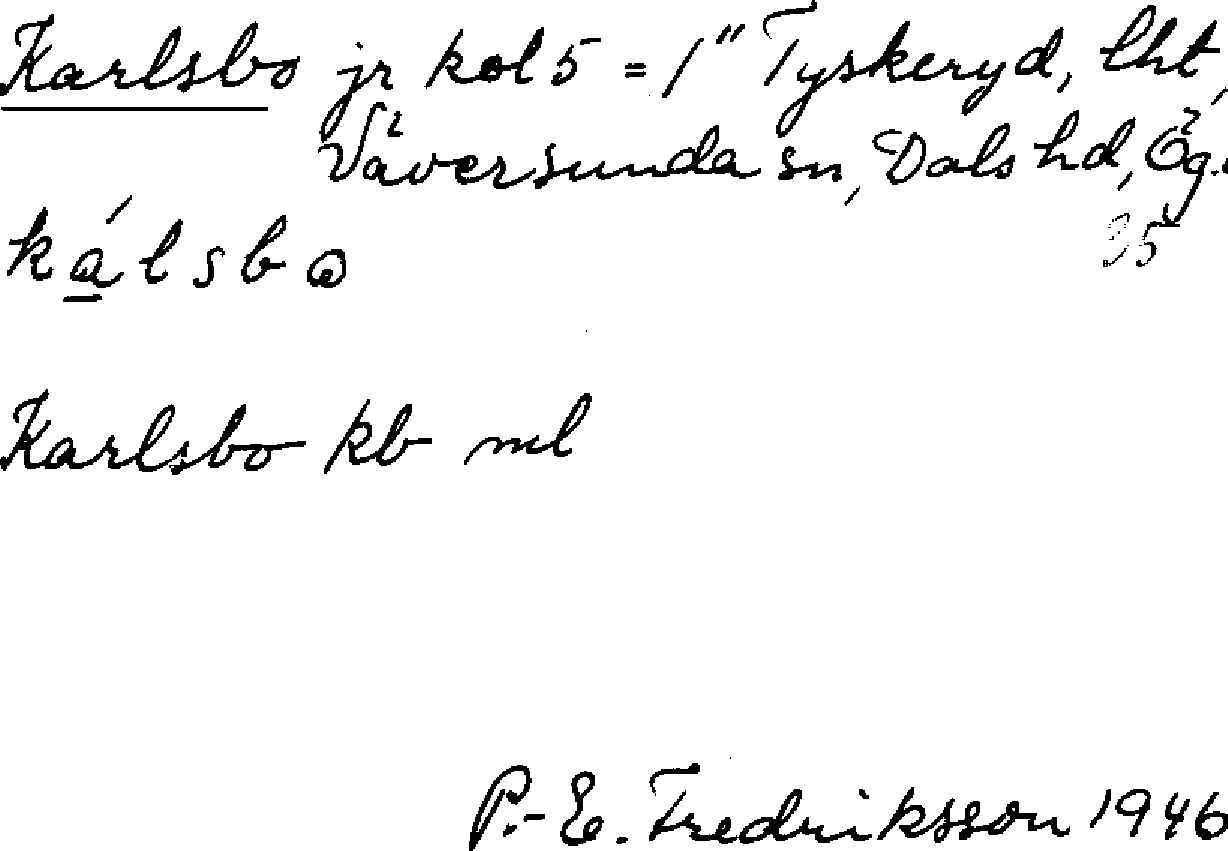 Karlsbo jr kol 5 = 1" Tyskeryd, lht,
Väversunda sn, Dals hd, Ög.
35
kálsbo
Karlsbo kb ml
P.-E. Fredriksson 1946